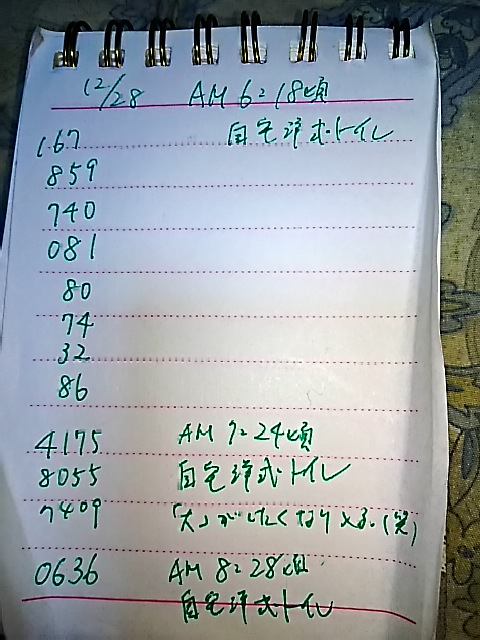 12/28 AM 6:18頃
167 自宅洋式トイレ
859
740
081
80
74
32
86
4175 AM 7:24頃
8055 自宅洋式トイレ
7409 「大」がしたくなり
0636 AM 8:28頃
自宅洋式トイレ